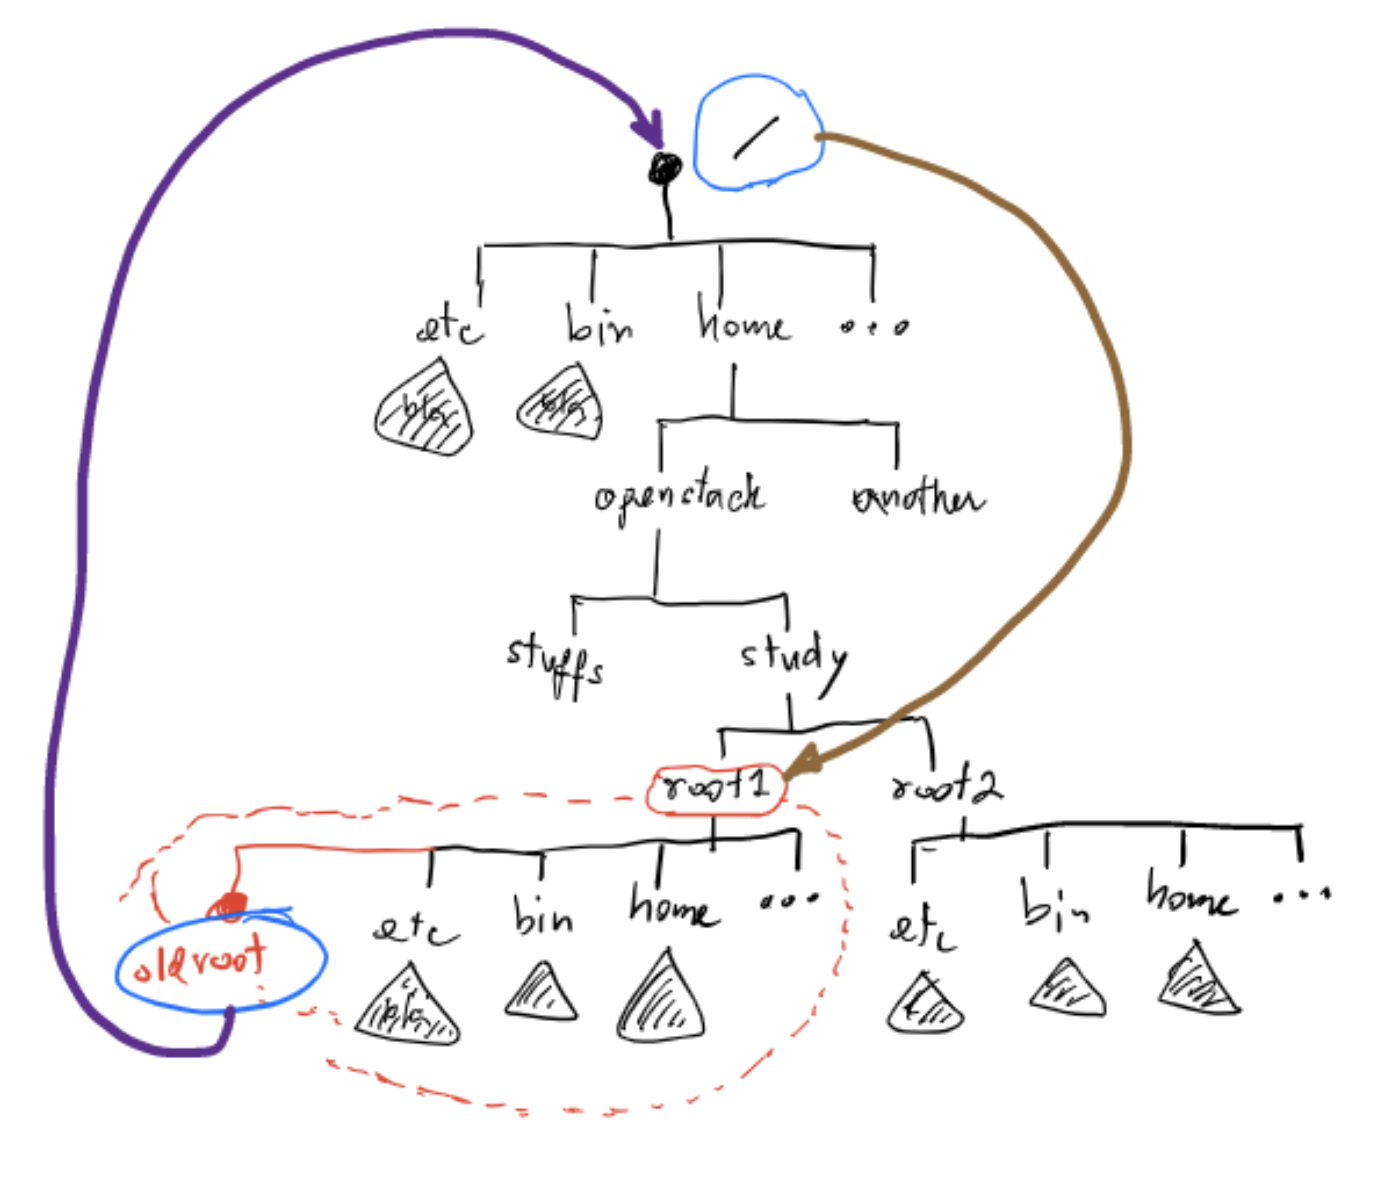 /
etc bin home ...
bla bla
openstack another
stuffs study
root1 root2
oldroot etc bin home ... etc bin home ...
bla